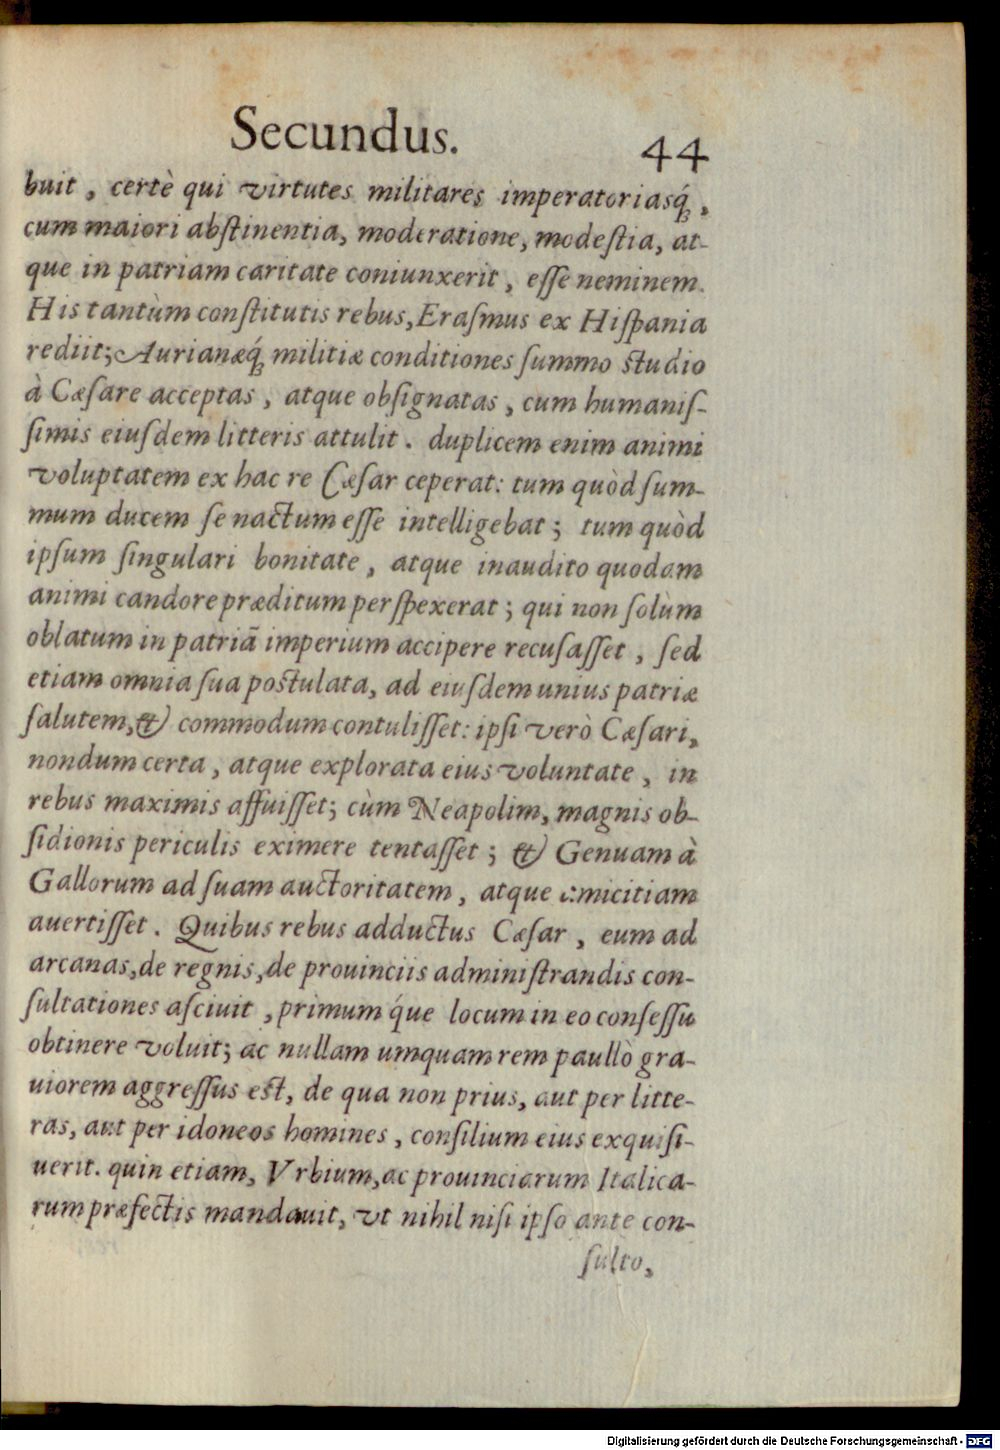 Secundus. 44
buit, certè qui virtutes militares imperatoriasq́;,
cum maiori abſtinentia, moderatione, modeſtia, at-
que in patriam caritate coniunxerit, eſſe neminem.
His tantùm conſtitutis rebus, Eraſmus ex Hiſpania
rediit; Aurianæq́; militiæ conditiones ſummo ſtudio
à Cæſare acceptas, atque obſignatas, cum humaniſ-
ſimis eiuſdem litteris attulit. duplicem enim animi
voluptatem ex hac re Cæſar ceperat: tum quòd ſum-
mum ducem ſe nactum eſſe intelligebat; tum quòd
ipſum ſingulari bonitate, atque inaudito quodam
animi candore præditum perſpexerat; qui non ſolùm
oblatum in patriã imperium accipere recuſaſſet, ſed
etiam omnia ſua poſtulata, ad eiuſdem unius patriæ
ſalutem, & commodum contuliſſet: ipſi verò Cæſari,
nondum certa, atque explorata eius voluntate, in
rebus maximis affuiſſet; cùm Neapolim, magnis ob-
ſidionis periculis eximere tentaſſet; & Genuam à
Gallorum ad ſuam auctoritatem, atque amicitiam
auertiſſet. Quibus rebus adductus Cæſar, eum ad
arcanas, de regnis, de prouinciis adminiſtrandis con-
ſultationes aſciuit, primum q́ue locum in eo conſeſſu
obtinere voluit; ac nullam umquam rem paullò gra-
uiorem aggreſſus eſt, de qua non prius, aut per litte-
ras, aut per idoneos homines, conſilium eius exquiſi-
uerit. quin etiam, Vrbium, ac prouinciarum Italica-
rum præfectis mandauit, vt nihil niſi ipſo ante con-
ſulto,
Digitalisierung gefördert durch die Deutsche Forschungsgemeinschaft - DFG